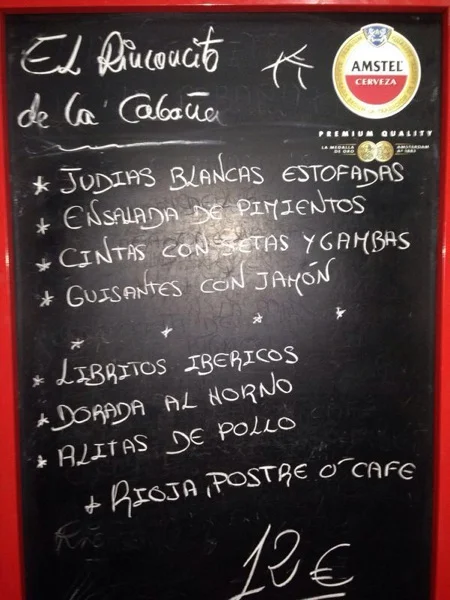 El Rinconcito
de la Cabaña
AMSTEL
CERVEZA
PREMIUM QUALITY
LA MEDALLA DE ORO
AMSTERDAM Aº 1883
* JUDIAS BLANCAS ESTOFADAS
* ENSALADA DE PIMIENTOS
* CINTAS CON SETAS Y GAMBAS
* GUISANTES CON JAMÓN
* * * *
* LIBRITOS IBERICOS
* DORADA AL HORNO
* ALITAS DE POLLO
+ RIOJA, POSTRE O´ CAFE
12 €